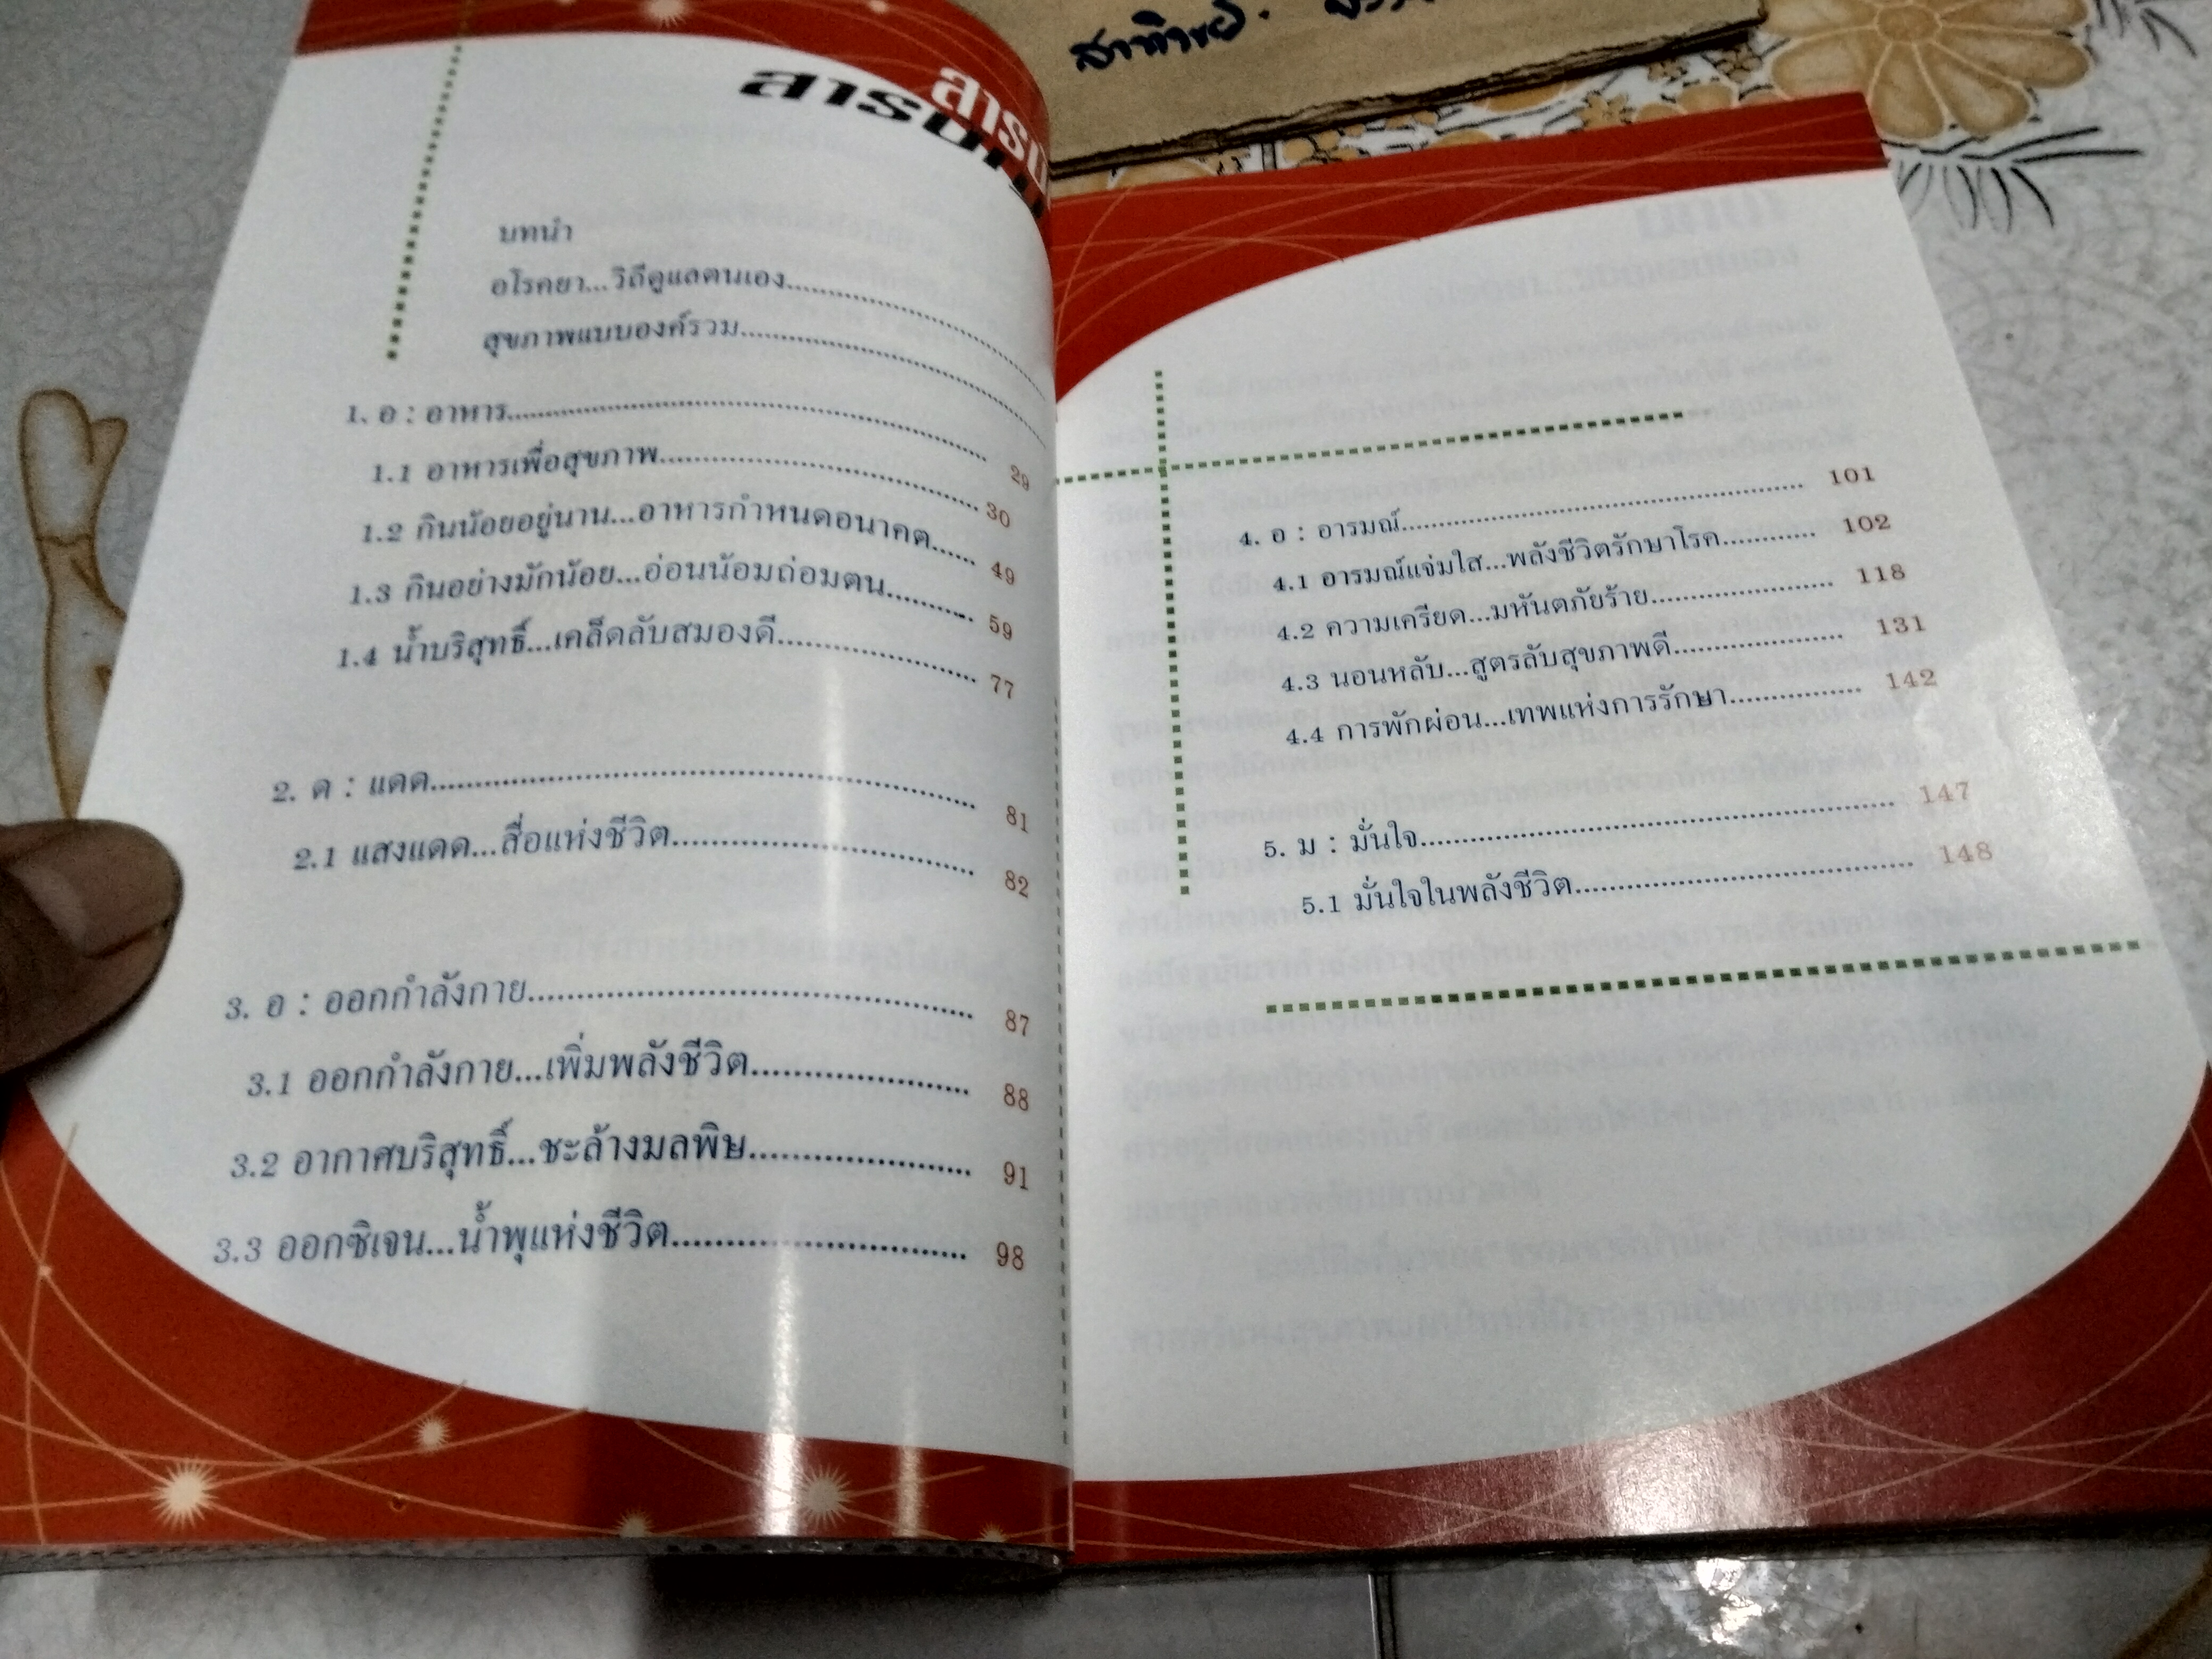 บทนำ
อโรคยา...วิถีดูแลตนเอง
สุขภาพแบบองค์รวม
1. อ : อาหาร 29
1.1 อาหารเพื่อสุขภาพ 30
1.2 กินน้อยอยู่นาน...อาหารกำหนดอนาคต 49
1.3 กินอย่างมักน้อย...อ่อนน้อมถ่อมตน 59
1.4 น้ำบริสุทธิ์...เคล็ดลับสมองดี 77
2. ด : แดด 81
2.1 แสงแดด...สื่อแห่งชีวิต 82
3. อ : ออกกำลังกาย 87
3.1 ออกกำลังกาย...เพิ่มพลังชีวิต 88
3.2 อากาศบริสุทธิ์...ชะล้างมลพิษ 91
3.3 ออกซิเจน...น้ำพุแห่งชีวิต 98
4. อ : อารมณ์ 101
4.1 อารมณ์แจ่มใส...พลังชีวิตรักษาโรค 102
4.2 ความเครียด...มหันตภัยร้าย 118
4.3 นอนหลับ...สูตรลับสุขภาพดี 131
4.4 การพักผ่อน...เทพแห่งการรักษา 142
5. ม : มั่นใจ 147
5.1 มั่นใจในพลังชีวิต 148